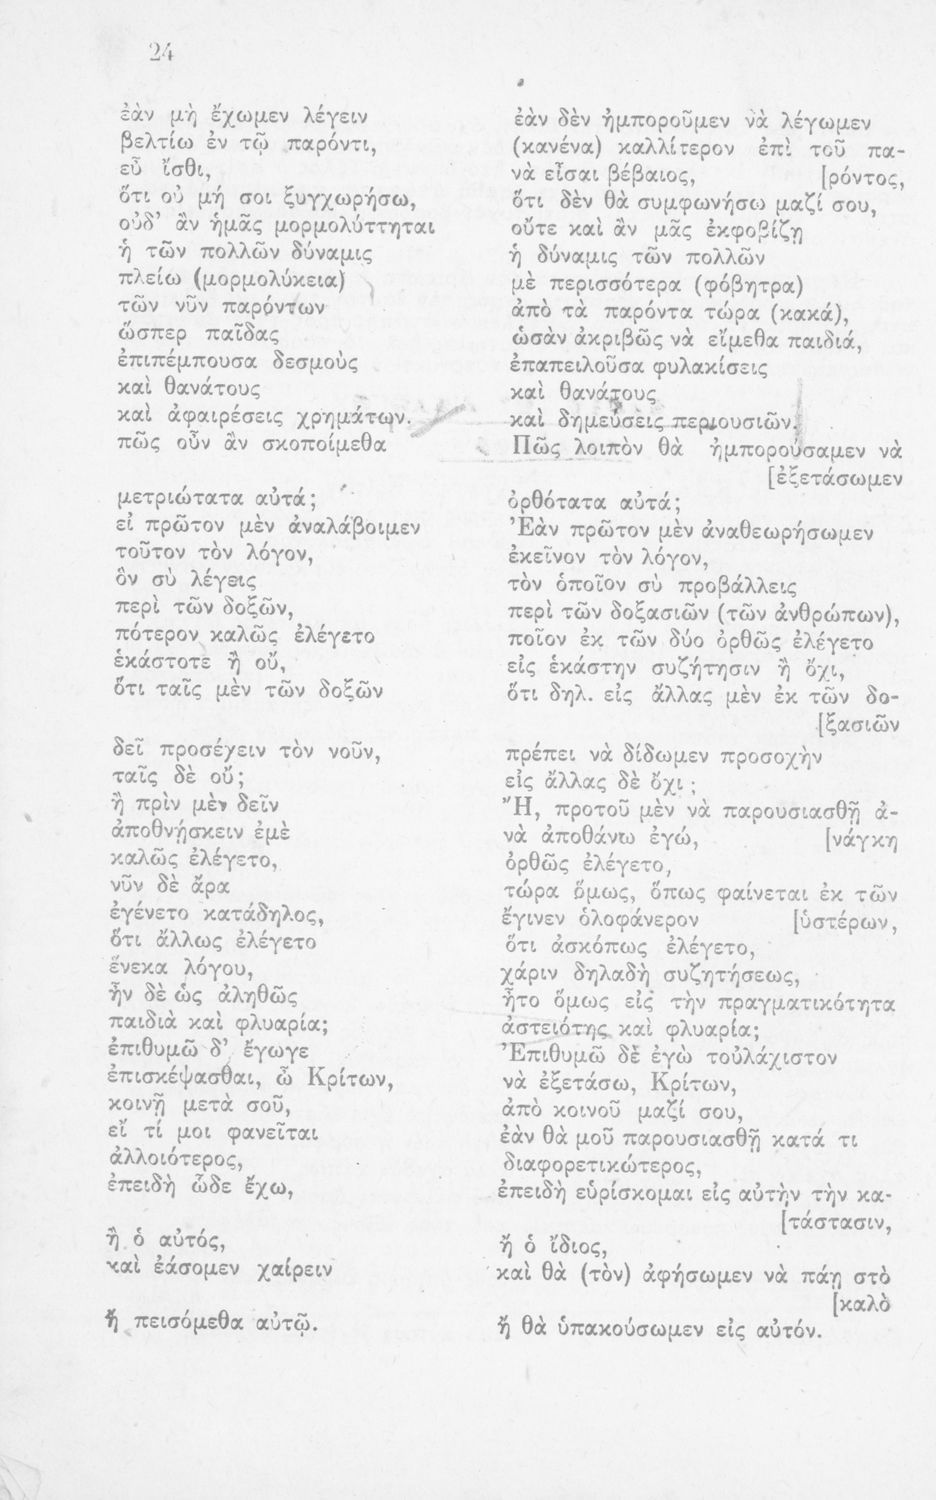 24
ἐὰν μὴ ἔχωμεν λέγειν
βελτίω ἐν τῷ παρόντι,
εὖ ἴσθι,
ὅτι οὐ μή σοι ξυγχωρήσω,
οὐδ' ἂν ἡμᾶς μορμολύττηται
ἡ τῶν πολλῶν δύναμις
πλείω (μορμολύκεια)
τῶν νῦν παρόντων
ὥσπερ παῖδας
ἐπιπέμπουσα δεσμοὺς
καὶ θανάτους
καὶ ἀφαιρέσεις χρημάτων.
πῶς οὖν ἂν σκοποίμεθα
μετριώτατα αὐτά;
εἰ πρῶτον μὲν ἀναλάβοιμεν
τοῦτον τὸν λόγον,
ὃν σὺ λέγεις
περὶ τῶν δοξῶν,
πότερον καλῶς ἐλέγετο
ἑκάστοτε ἢ οὔ,
ὅτι ταῖς μὲν τῶν δοξῶν
δεῖ προσέχειν τὸν νοῦν,
ταῖς δὲ οὔ;
ἢ πρὶν μὲν δεῖν
ἀποθνῄσκειν ἐμὲ
καλῶς ἐλέγετο,
νῦν δὲ ἄρα
ἐγένετο κατάδηλος,
ὅτι ἄλλως ἐλέγετο
ἕνεκα λόγου,
ἦν δὲ ὡς ἀληθῶς
παιδιὰ καὶ φλυαρία;
ἐπιθυμῶ δ' ἔγωγε
ἐπισκέψασθαι, ὦ Κρίτων,
κοινῇ μετὰ σοῦ,
εἴ τί μοι φανεῖται
ἀλλοιότερος,
ἐπειδὴ ὧδε ἔχω,
ἢ ὁ αὐτός,
καὶ ἐάσομεν χαίρειν
ἢ πεισόμεθα αὐτῷ.
ἐὰν δὲν ἠμποροῦμεν νὰ λέγωμεν
(κανένα) καλλίτερον ἐπὶ τοῦ πα-
νὰ εἶσαι βέβαιος, [ρόντος,
ὅτι δὲν θὰ συμφωνήσω μαζί σου,
οὔτε καὶ ἂν μᾶς ἐκφοβίζῃ
ἡ δύναμις τῶν πολλῶν
μὲ περισσότερα (φόβητρα)
ἀπὸ τὰ παρόντα τώρα (κακά),
ὡσὰν ἀκριβῶς νὰ εἴμεθα παιδιά,
ἐπαπειλοῦσα φυλακίσεις
καὶ θανάτους
καὶ δημεύσεις περιουσιῶν.
Πῶς λοιπὸν θὰ ἠμπορούσαμεν νὰ
[ἐξετάσωμεν
ὀρθότατα αὐτά;
Ἐὰν πρῶτον μὲν ἀναθεωρήσωμεν
ἐκεῖνον τὸν λόγον,
τὸν ὁποῖον σὺ προβάλλεις
περὶ τῶν δοξασιῶν (τῶν ἀνθρώπων),
ποῖον ἐκ τῶν δύο ὀρθῶς ἐλέγετο
εἰς ἑκάστην συζήτησιν ἢ ὄχι,
ὅτι δηλ. εἰς ἄλλας μὲν ἐκ τῶν δο-
[ξασιῶν
πρέπει νὰ δίδωμεν προσοχὴν
εἰς ἄλλας δὲ ὄχι;
Ἤ, προτοῦ μὲν νὰ παρουσιασθῇ ἀ-
νὰ ἀποθάνω ἐγώ, [νάγκη
ὀρθῶς ἐλέγετο,
τώρα ὅμως, ὅπως φαίνεται ἐκ τῶν
ἔγινεν ὁλοφάνερον [ὑστέρων,
ὅτι ἀσκόπως ἐλέγετο,
χάριν δηλαδὴ συζητήσεως,
ἦτο ὅμως εἰς τὴν πραγματικότητα
ἀστειότης καὶ φλυαρία;
Ἐπιθυμῶ δὲ ἐγὼ τοὐλάχιστον
νὰ ἐξετάσω, Κρίτων,
ἀπὸ κοινοῦ μαζί σου,
ἐὰν θὰ μοῦ παρουσιασθῇ κατά τι
διαφορετικώτερος,
ἐπειδὴ εὑρίσκομαι εἰς αὐτὴν τὴν κα-
[τάστασιν,
ἢ ὁ ἴδιος,
καὶ θὰ (τὸν) ἀφήσωμεν νὰ πάῃ στὸ
[καλὸ
ἢ θὰ ὑπακούσωμεν εἰς αὐτόν.